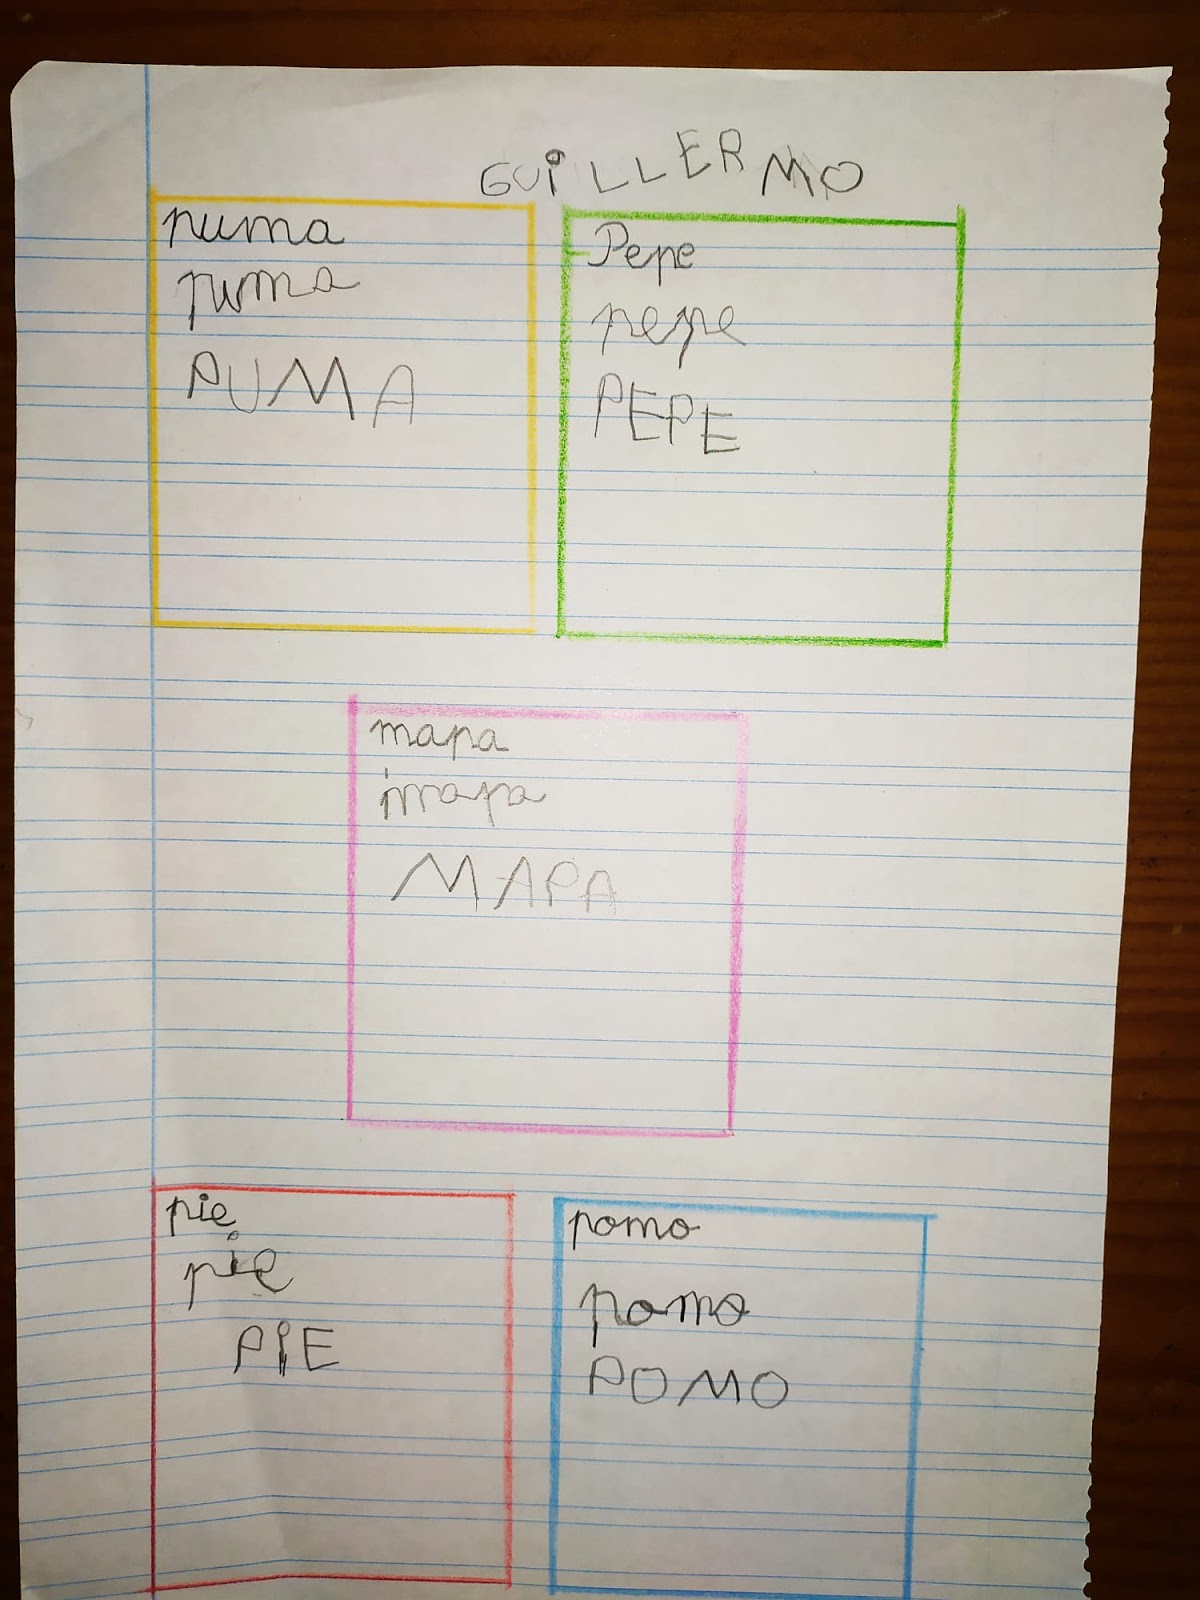 GUiLLERMO
puma
puma
PUMA
Pepe
pepe
PEPE
mapa
mapa
MAPA
pie
pie
PiE
pomo
pomo
POMO